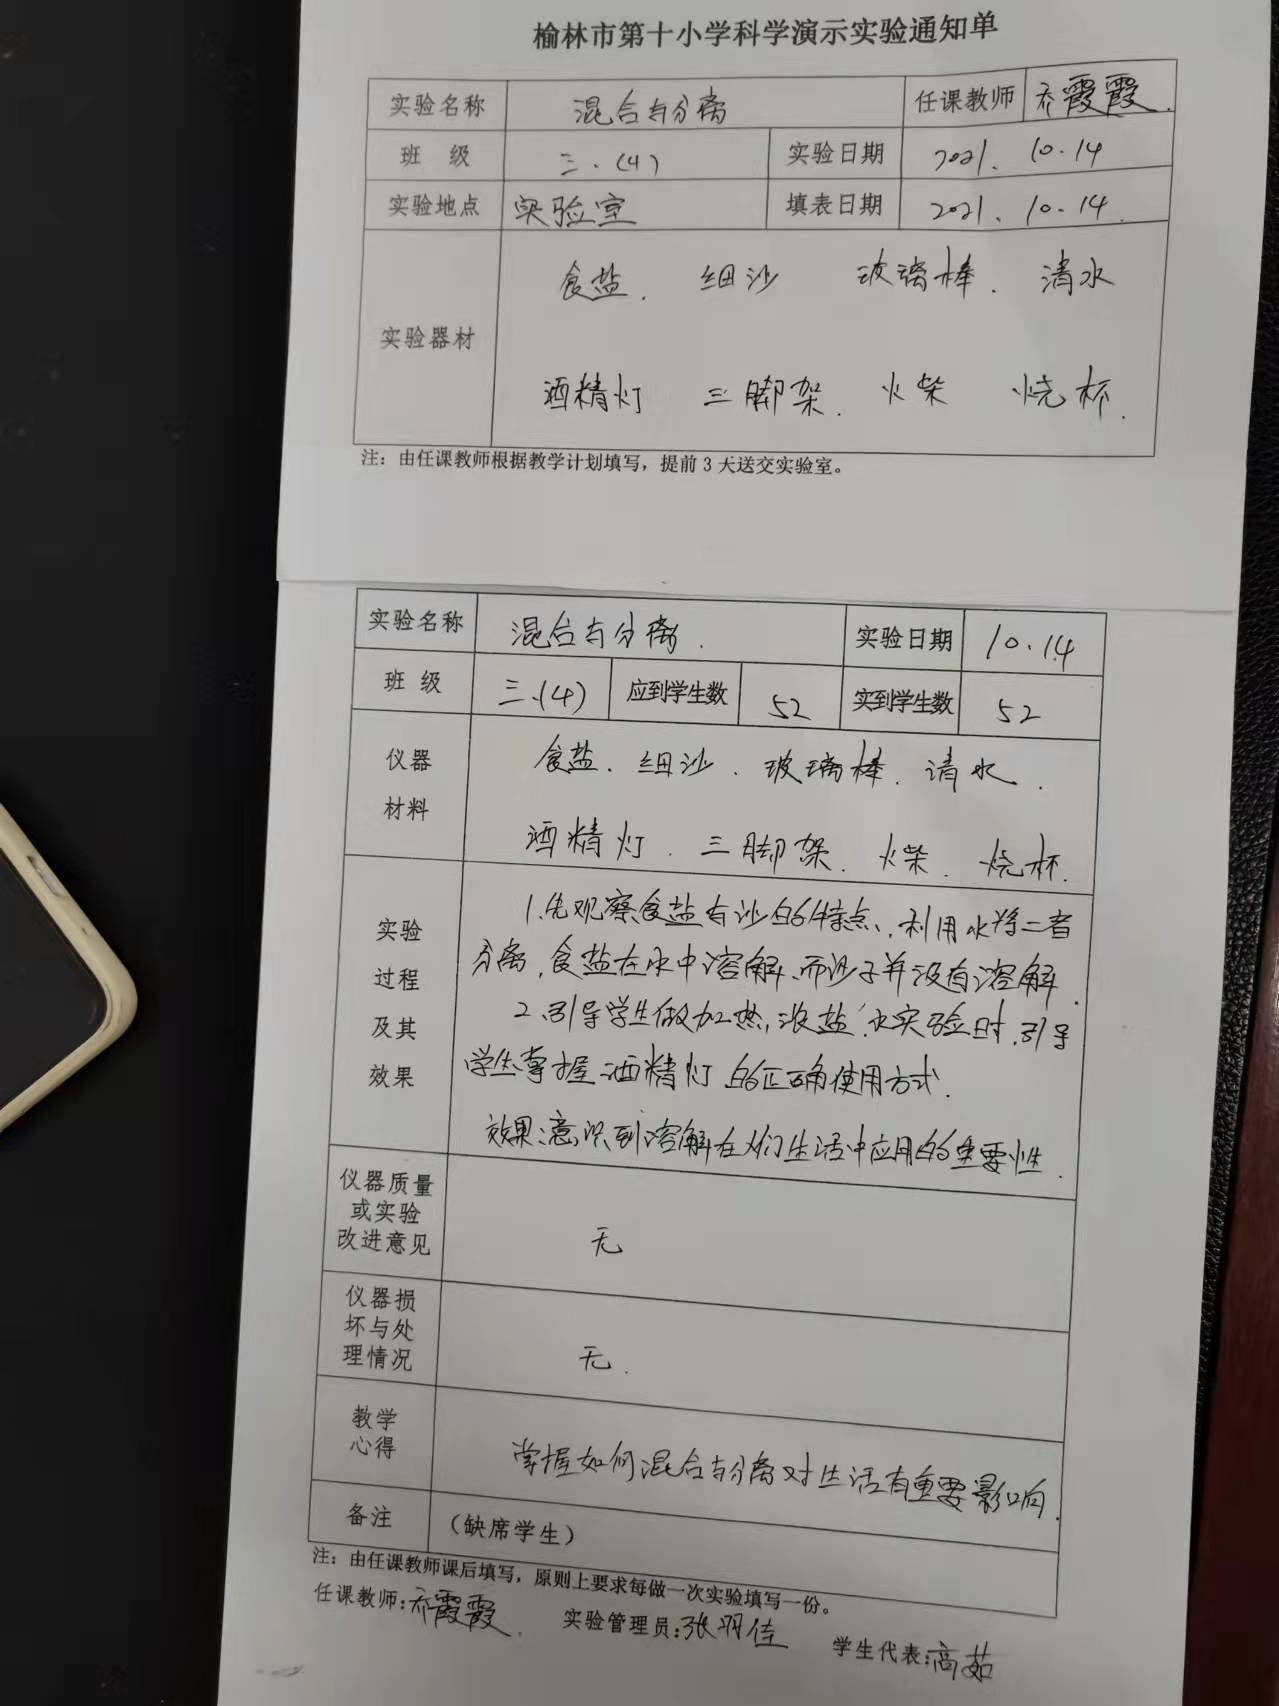 榆林市第十小学科学演示实验通知单
实验名称 混合与分离 任课教师 乔霞霞.
班 级 三.(4) 实验日期 2021. 10.14
实验地点 实验室 填表日期 2021. 10.14.
实验器材
食盐. 细沙 玻璃棒. 清水
酒精灯 三脚架. 火柴 烧杯.
注：由任课教师根据教学计划填写，提前3天送交实验室。
实验名称 混合与分离. 实验日期 10.14
班 级 三.(4) 应到学生数 52 实到学生数 52
仪器
材料
食盐. 细沙. 玻璃棒. 清水.
酒精灯. 三脚架. 火柴. 烧杯.
实验
过程
及其
效果
1.先观察食盐与沙的特点,利用水将二者
分离,食盐在水中溶解,而沙子并没有溶解.
2.引导学生做加热,浓盐水实验时,引导
学生掌握酒精灯的正确使用方式.
效果:意识到溶解在人们生活中应用的重要性.
仪器质量
或实验
改进意见
无
仪器损
坏与处
理情况
无.
教学
心得
掌握如何混合与分离对生活有重要影响.
备注 （缺席学生）
注：由任课教师课后填写，原则上要求每做一次实验填写一份。
任课教师:乔霞霞. 实验管理员:张羽佳 学生代表:高茹